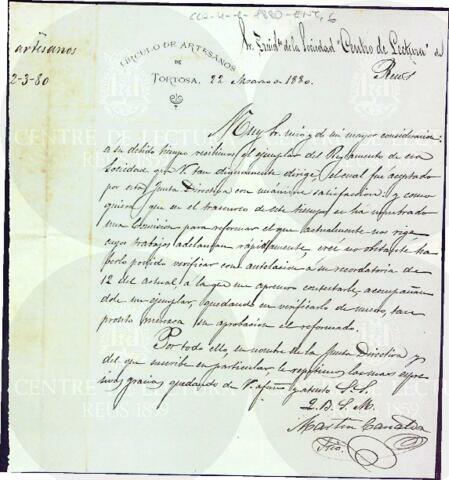 CCL-4-8-1880-ENT, 6
artesanos
2-3-80
CÍRCULO DE ARTESANOS
DE
TORTOSA.
22 Marzo de 1880.
Sr. Presidte de la Sociedad "Centro de Lectura" de
Reus
Muy Sr. mio y de mi mayor consideracion:
a su debido tiempo recibimos el ejemplar del Reglamento de esa
Sociedad que V. tan dignamente dirige, el cual fué aceptado
por esta Junta Directiva con muchísima satisfaccion: y como
quiera que en el trascurso de este tiempo se ha nombrado
una Comision para reformar el que actualmente nos rige
cuyos trabajos adelantan rápidamente, creí no obstante ha-
berlo podido verificar con antelacion á su recordatoria de
12 del actual, á la que me apresuro contestarle, acompañan-
dole un ejemplar, quedando en verificarlo de nuevo, tan
pronto merezca su aprobacion el reformado.
Por todo ello, en nombre de la Junta Directiva y
del que suscribe en particular, le repetimos las mas expre-
sivas gracias quedando de V. afmo. y atento S. S.
Q. B. S. M.
Martin
Srio.
CENTRE DE LECTURA
REUS 1859